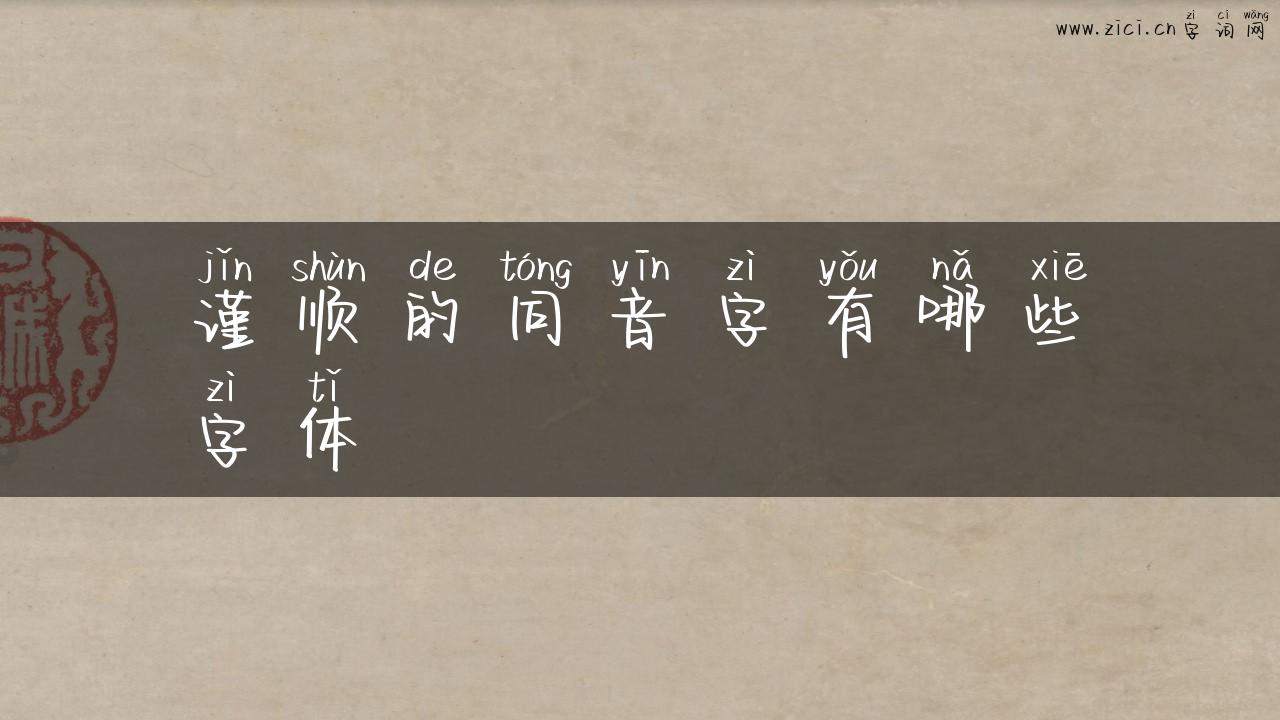 zì cí wǎng
www.zici.cn 字 词 网
jǐn shùn de tóng yīn zì yǒu nǎ xiē
谨 顺 的 同 音 字 有 哪 些
zì tǐ
字 体